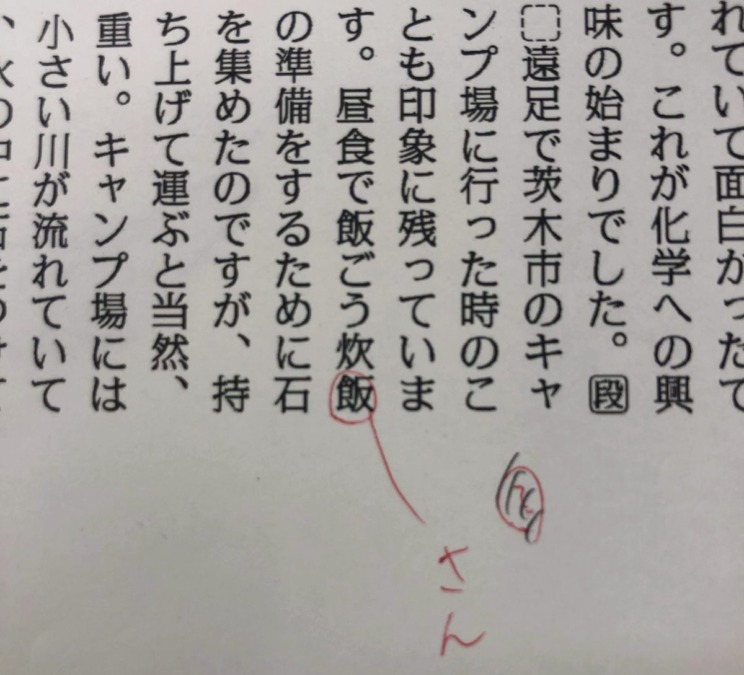 れていて面白かったで
す。これが化学への興
味の始まりでした。段
遠足で茨木市のキャ
ンプ場に行った時のこ
とも印象に残っていま
す。昼食で飯ごう炊飯
の準備をするために石
を集めたのですが、持
ち上げて運ぶと当然、
重い。キャンプ場には
小さい川が流れていて
さん